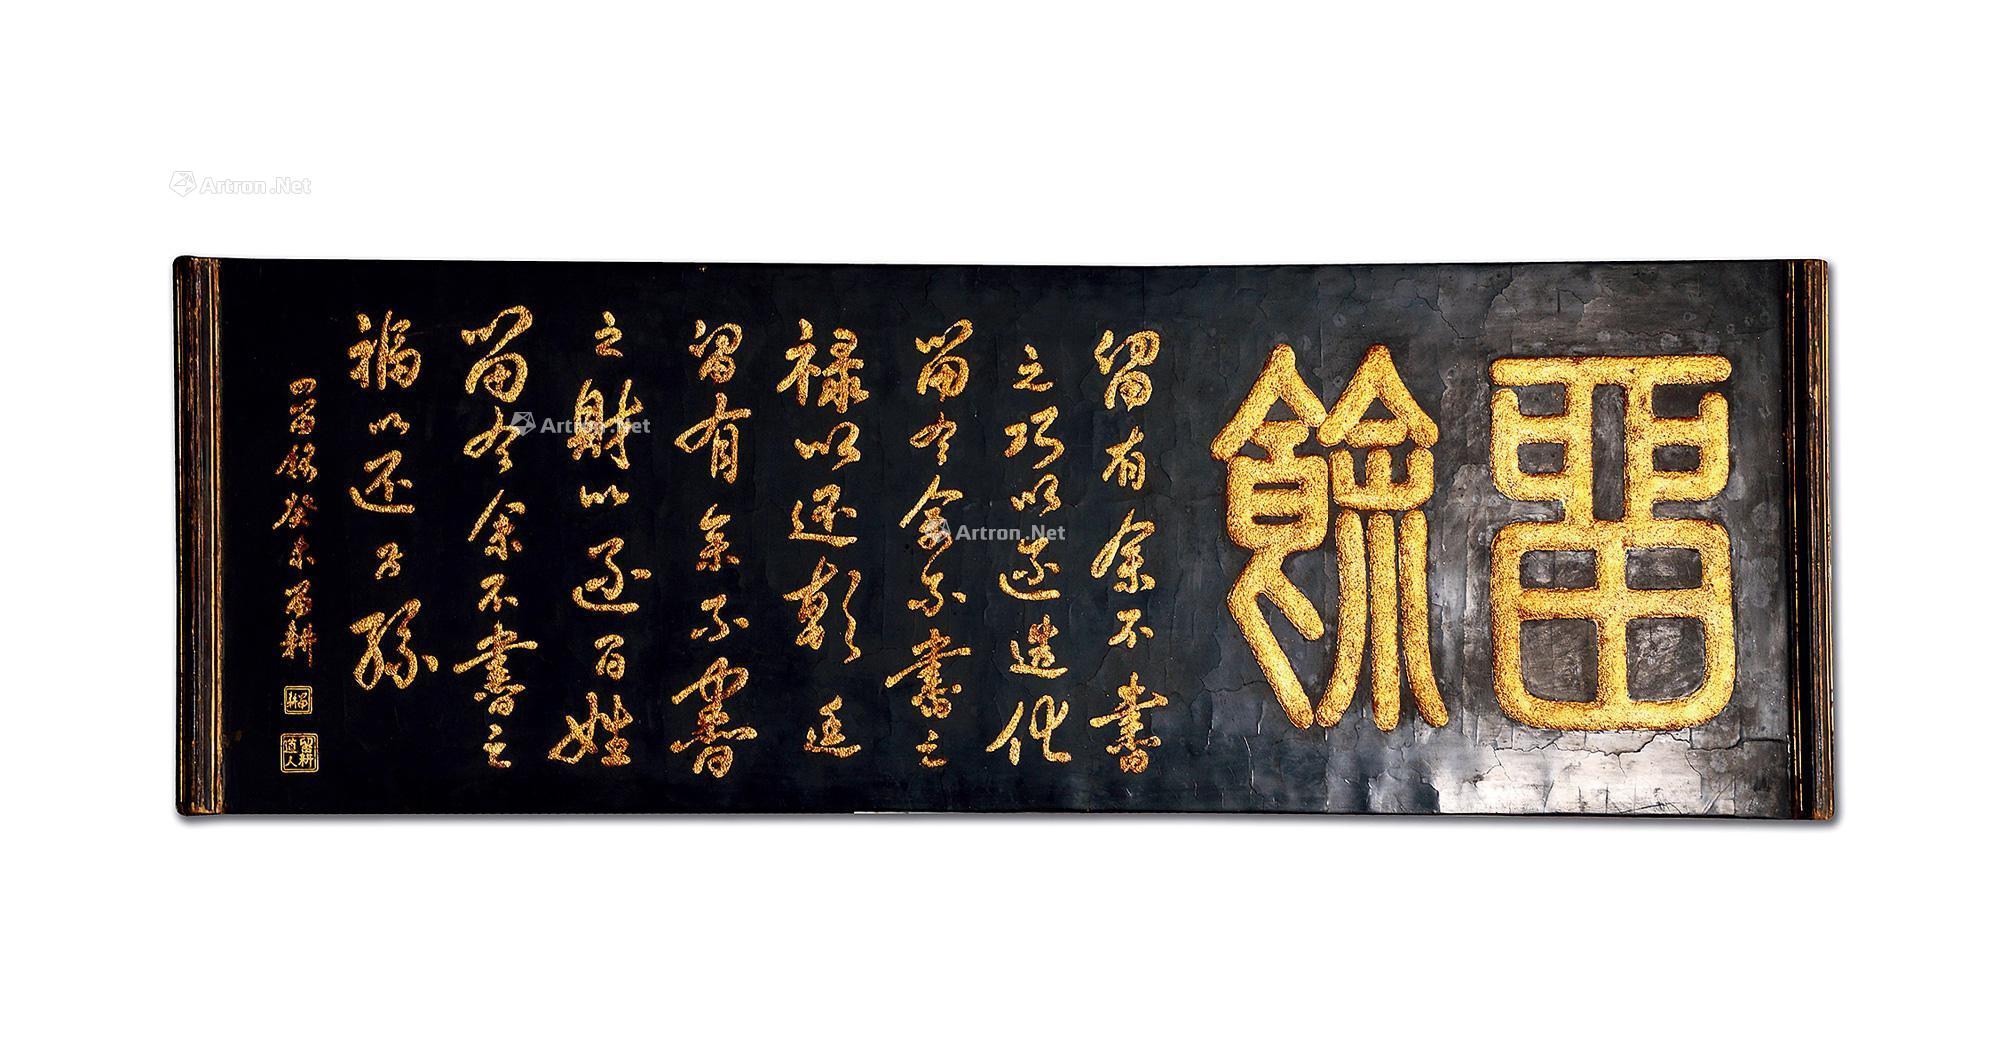 留餘
留有余不盡
之巧以還造化
留有余不盡之
禄以還朝廷
留有余不盡
之財以還百姓
留有余不盡之
福以還子孫
四留銘癸未留耕
留耕
留耕道人
Artron.Net
Artron.Net
Artron.Net